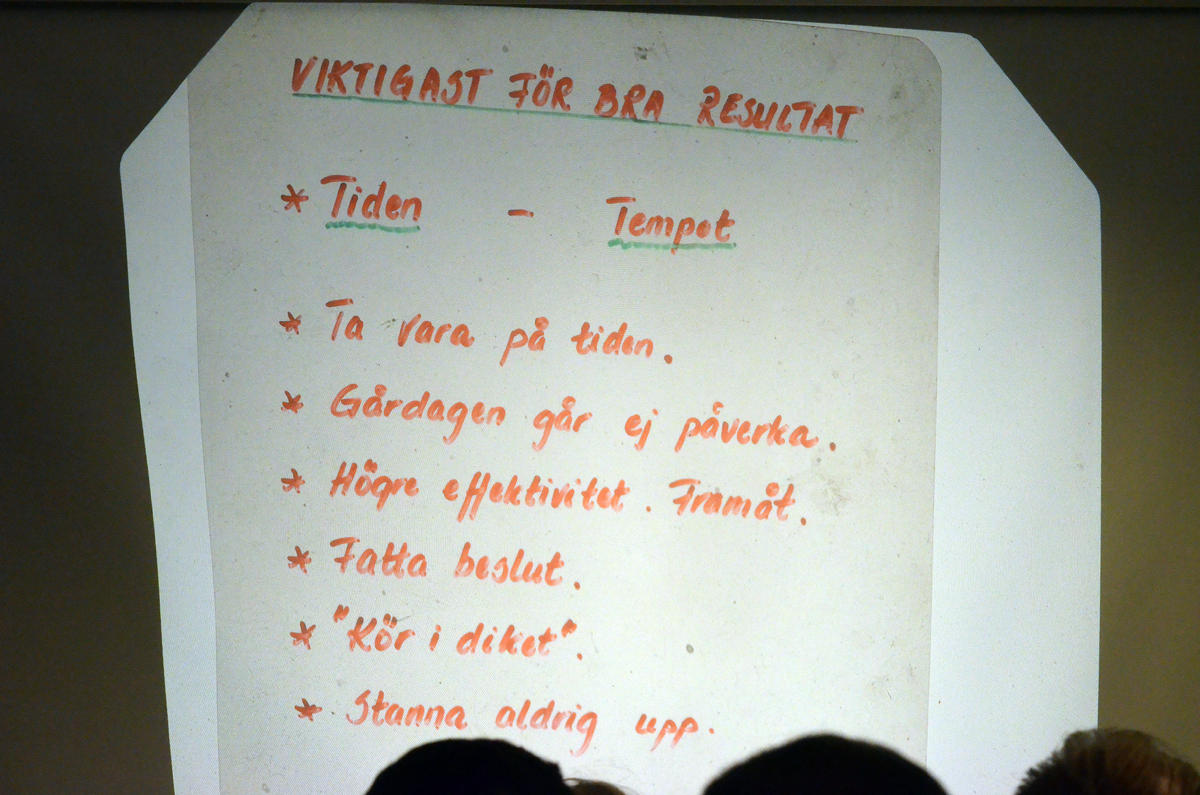 VIKTIGAST FÖR BRA RESULTAT
* Tiden - Tempot
* Ta vara på tiden.
* Gårdagen går ej påverka.
* Högre effektivitet. Framåt.
* Fatta beslut.
* "Kör i diket".
* Stanna aldrig upp.